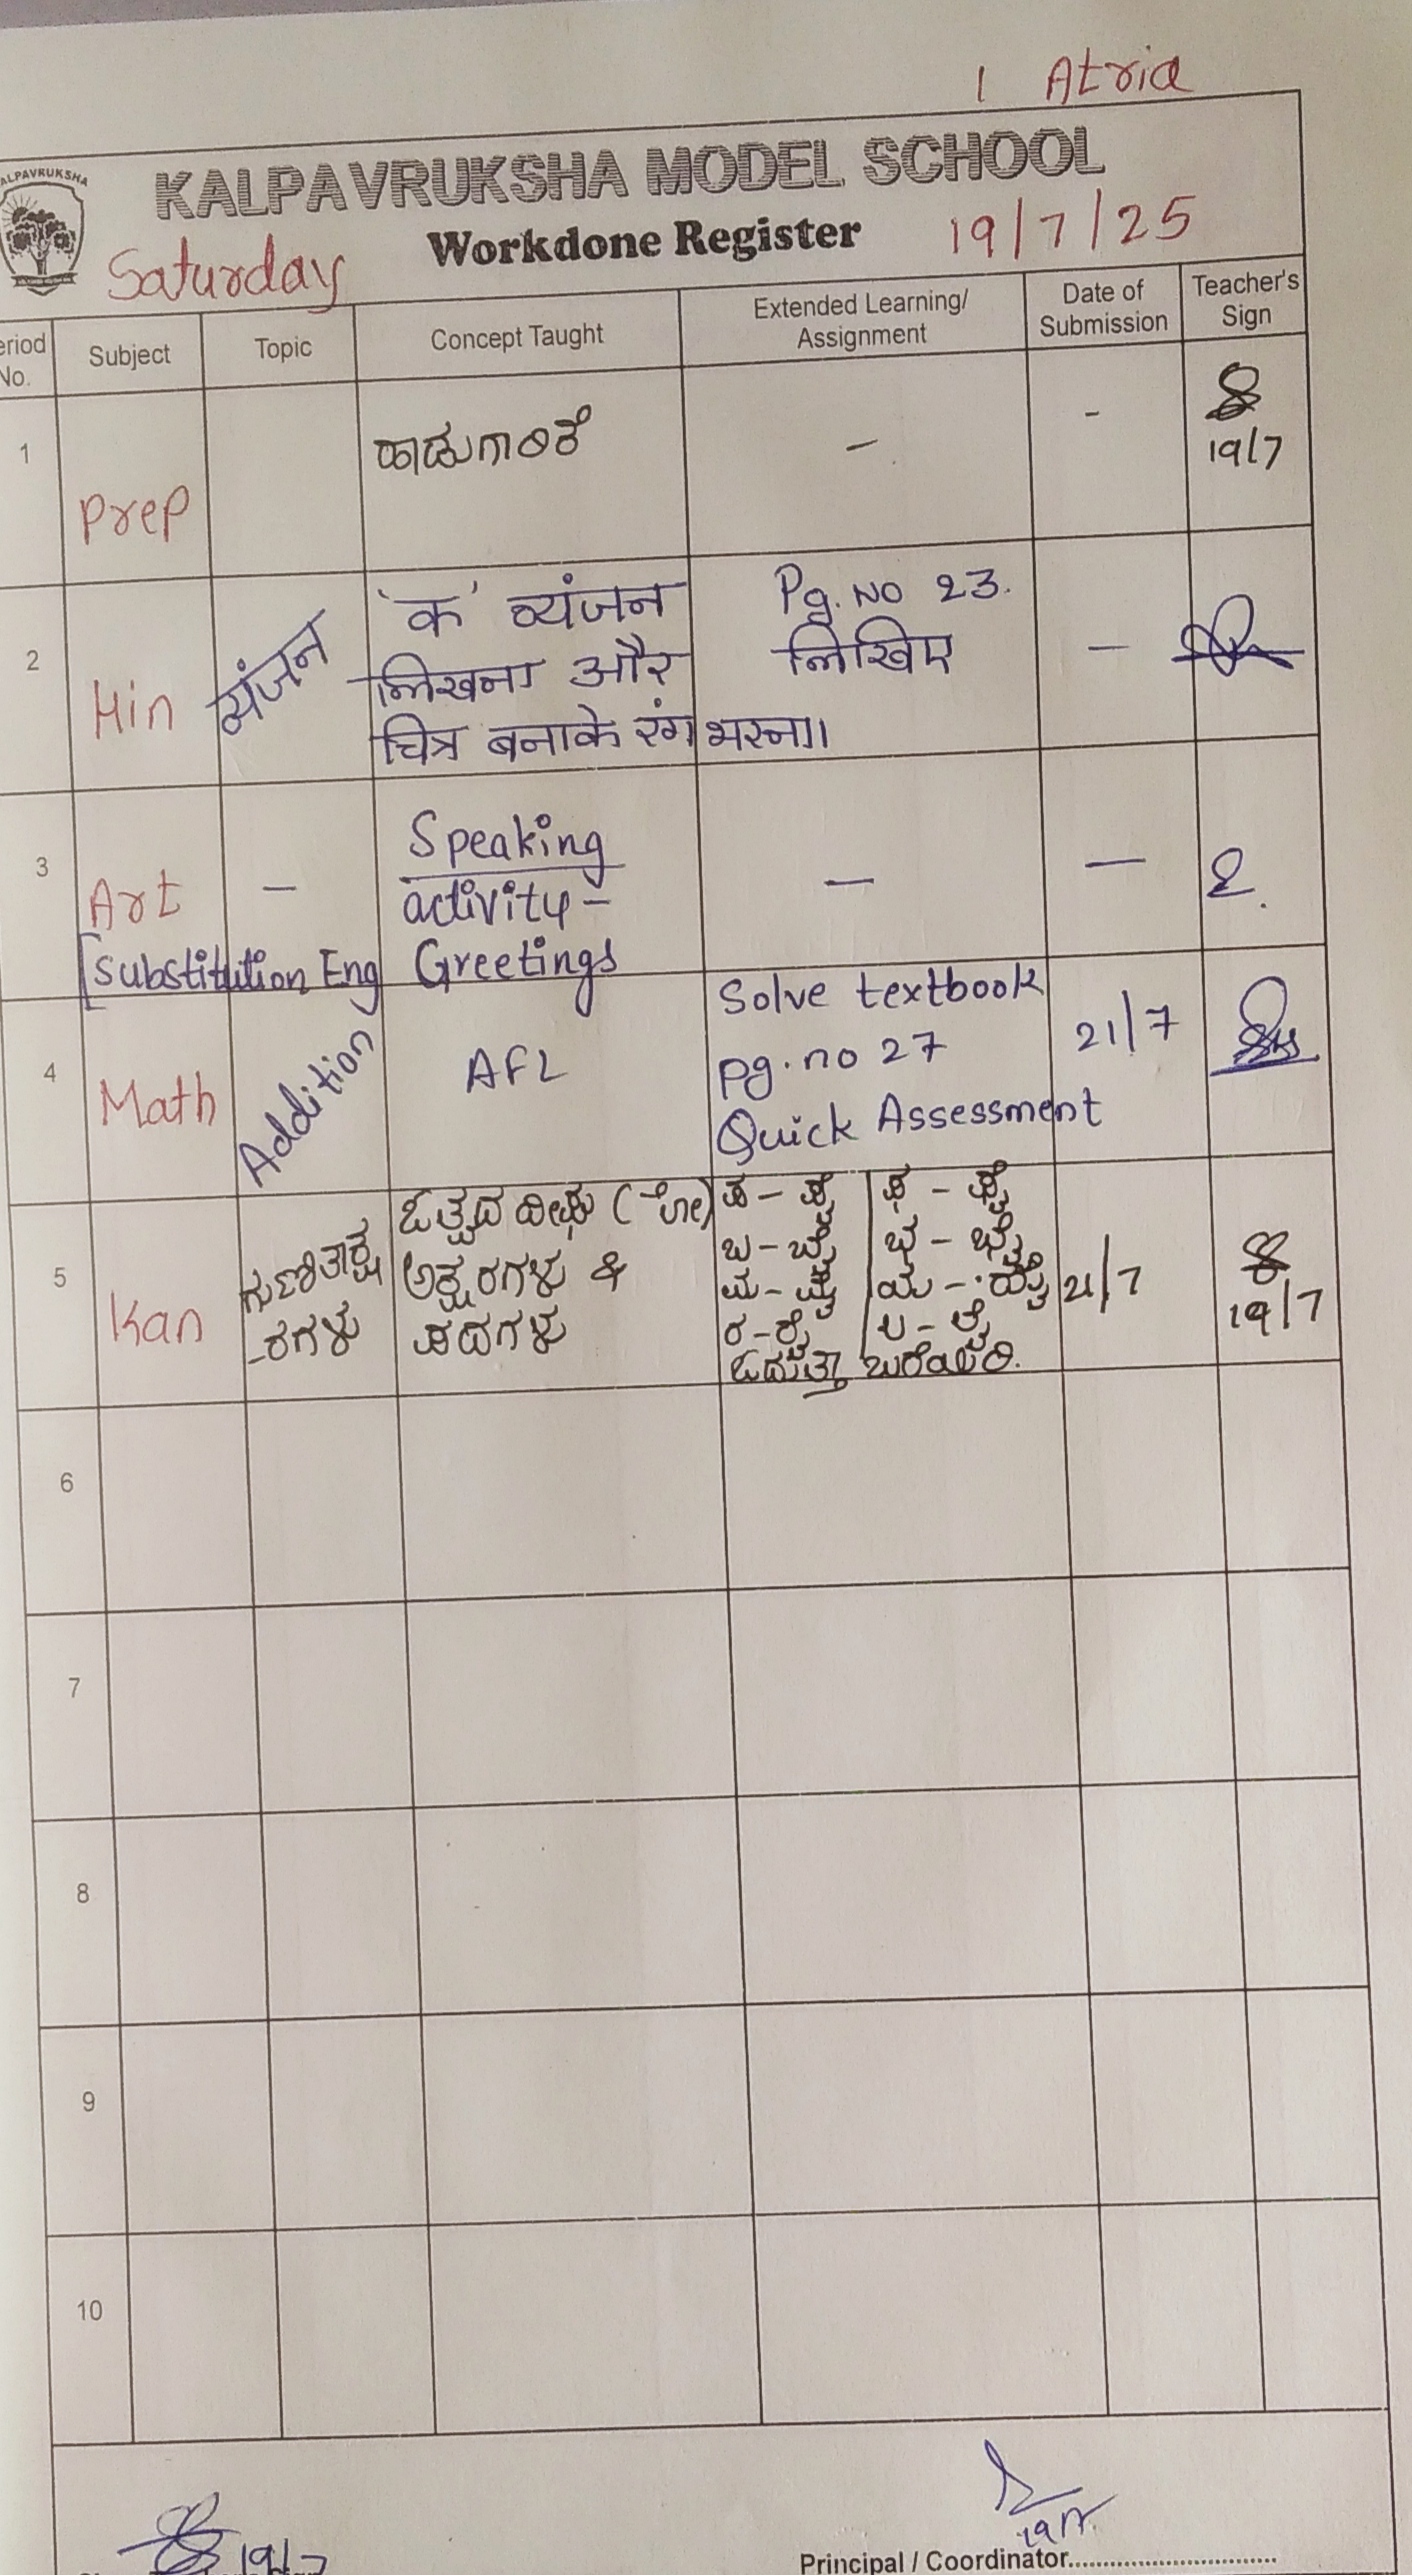 1 Atria
KALPAVRUKSHA
KALPAVRUKSHA MODEL SCHOOL
Workdone Register
Saturday
19/7/25
Period No.
Subject
Topic
Concept Taught
Extended Learning/
Assignment
Date of
Submission
Teacher's
Sign
1
Prep
ಹಾಡುಗಾರಿಕೆ
-
-
19/7
2
Hin
व्यंजन
'क' व्यंजन
लिखना और
चित्र बनाके रंग भरना।
Pg. No 23.
लिखिए
-
3
Art
[Substitution Eng
-
Speaking
activity -
Greetings
-
-
4
Math
Addition
AFL
Solve textbook
pg. no 27
Quick Assessment
21/7
5
Kan
ಗುಣಿತಾಕ್ಷ
-ರಗಳು
ಓತ್ವದ ದೀರ್ಘ
ಅಕ್ಷರಗಳು &
ಪದಗಳು
ಓದುತ್ತಾ ಬರೆಯಿರಿ.
21/7
19/7
6
7
8
9
10
19/7
19/7
Principal / Coordinator